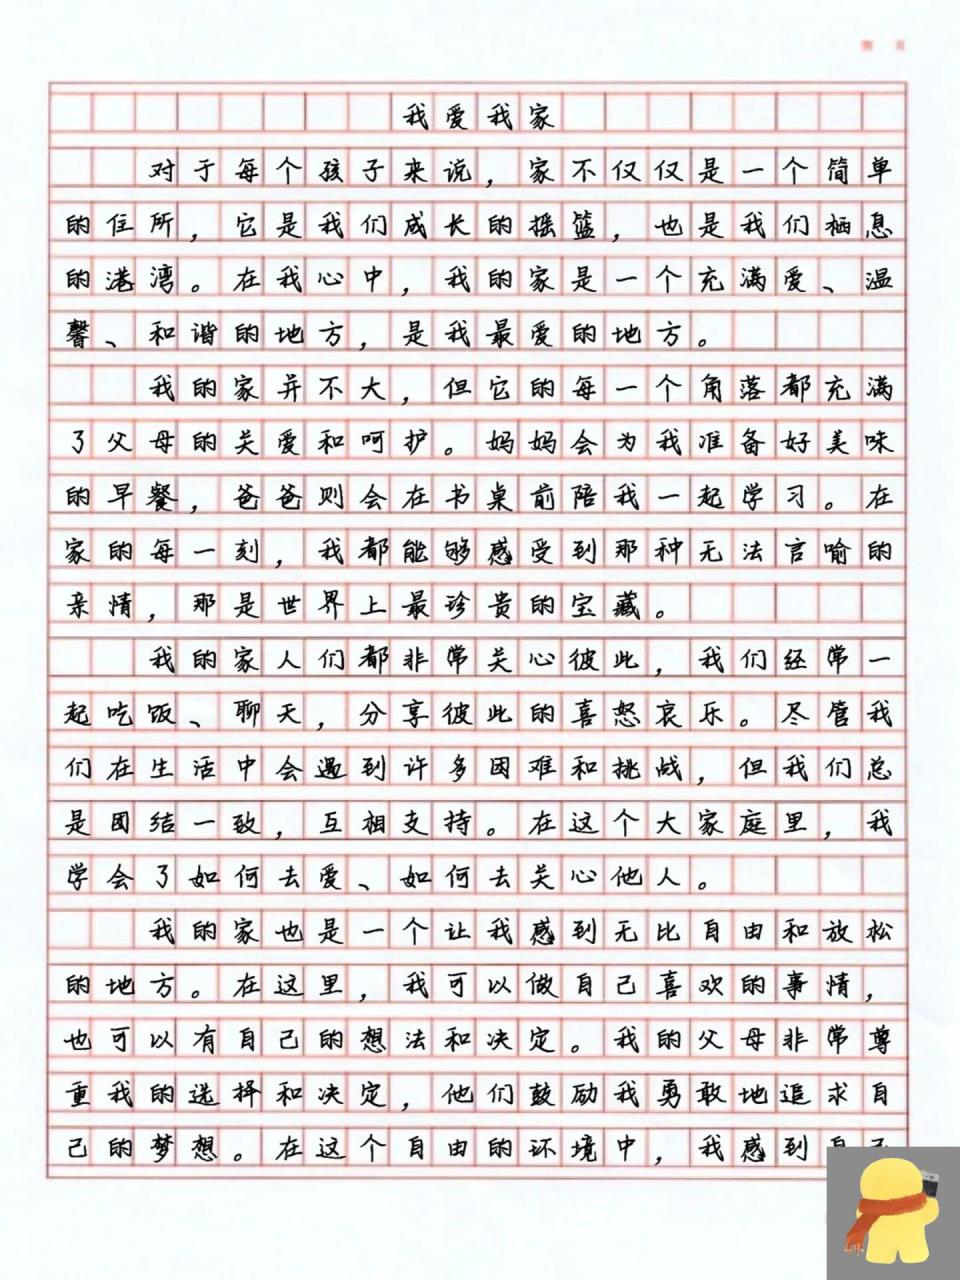 我爱我家
对于每个孩子来说，家不仅仅是一个简单
的住所，它是我们成长的摇篮，也是我们栖息
的港湾。在我心中，我的家是一个充满爱、温
馨、和谐的地方，是我最爱的地方。
我的家并不大，但它的每一个角落都充满
了父母的关爱和呵护。妈妈会为我准备好美味
的早餐，爸爸则会在书桌前陪我一起学习。在
家的每一刻，我都能够感受到那种无法言喻的
亲情，那是世界上最珍贵的宝藏。
我的家人们都非常关心彼此，我们经常一
起吃饭、聊天，分享彼此的喜怒哀乐。尽管我
们在生活中会遇到许多困难和挑战，但我们总
是团结一致，互相支持。在这个大家庭里，我
学会了如何去爱、如何去关心他人。
我的家也是一个让我感到无比自由和放松
的地方。在这里，我可以做自己喜欢的事情，
也可以有自己的想法和决定。我的父母非常尊
重我的选择和决定，他们鼓励我勇敢地追求自
己的梦想。在这个自由的环境中，我感到